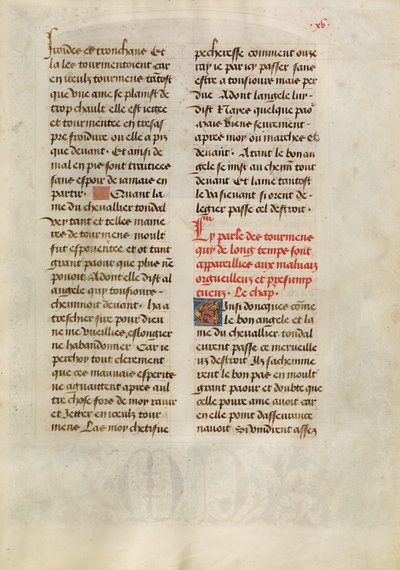 .xv.
froides et tronchans Et
la les tourmentoient car
en iceulz tourmens tantost
que vne ame se plaindist de
trop chault elle est iettee
et tourmentee en tresas
pre froidure ou elle a pis
que deuant. Et ainsi de
mal en pis sont traitiees
sans espoir de iamais en
partir. Quant la
me du cheuallier tondal
vey tant et telles manie
res de tourmens moult
fut espouentee et ot tant
grant paour que plus ne
pouoit Adont elle dist al
angele quy tousiours
cheminoit deuant. ha a
treschier sire pour dieu
ne me vueillies eslongier
ne habandonner Car ie
perchoy tout clerement
que ces mauuais esperits
ne aguaittent apres aul
tre chose fors de moy rauir
et Jetter en iceulz tour
mens Las moy chetifue
pecheresse comment oze
ray ie par icy passer sans
estre a tousiours mais per
due Adont langele luy
dist Nayes quelque pao
mais viens seurement
apres moy ou marches
deuant. Atant le bon an
gele se mist au chemin tout
deuant Et lame tantost
le va sieuant si orent de
legier passe cel destroit.
Ly parle des tourmens
quy de long temps sont
appareillies aux mauuais
orguilleux et presump
tueux. Le chap.
Ainsi doncques comme
le bon angele et la
me du cheuallier tondal
eurent passe ce merueille
us destroit Ilz sachemine
rent le bon pas en moult
grant paour et doubte que
celle poure ame auoit car
en elle point dasseurance
nauoit Si vindrent asses